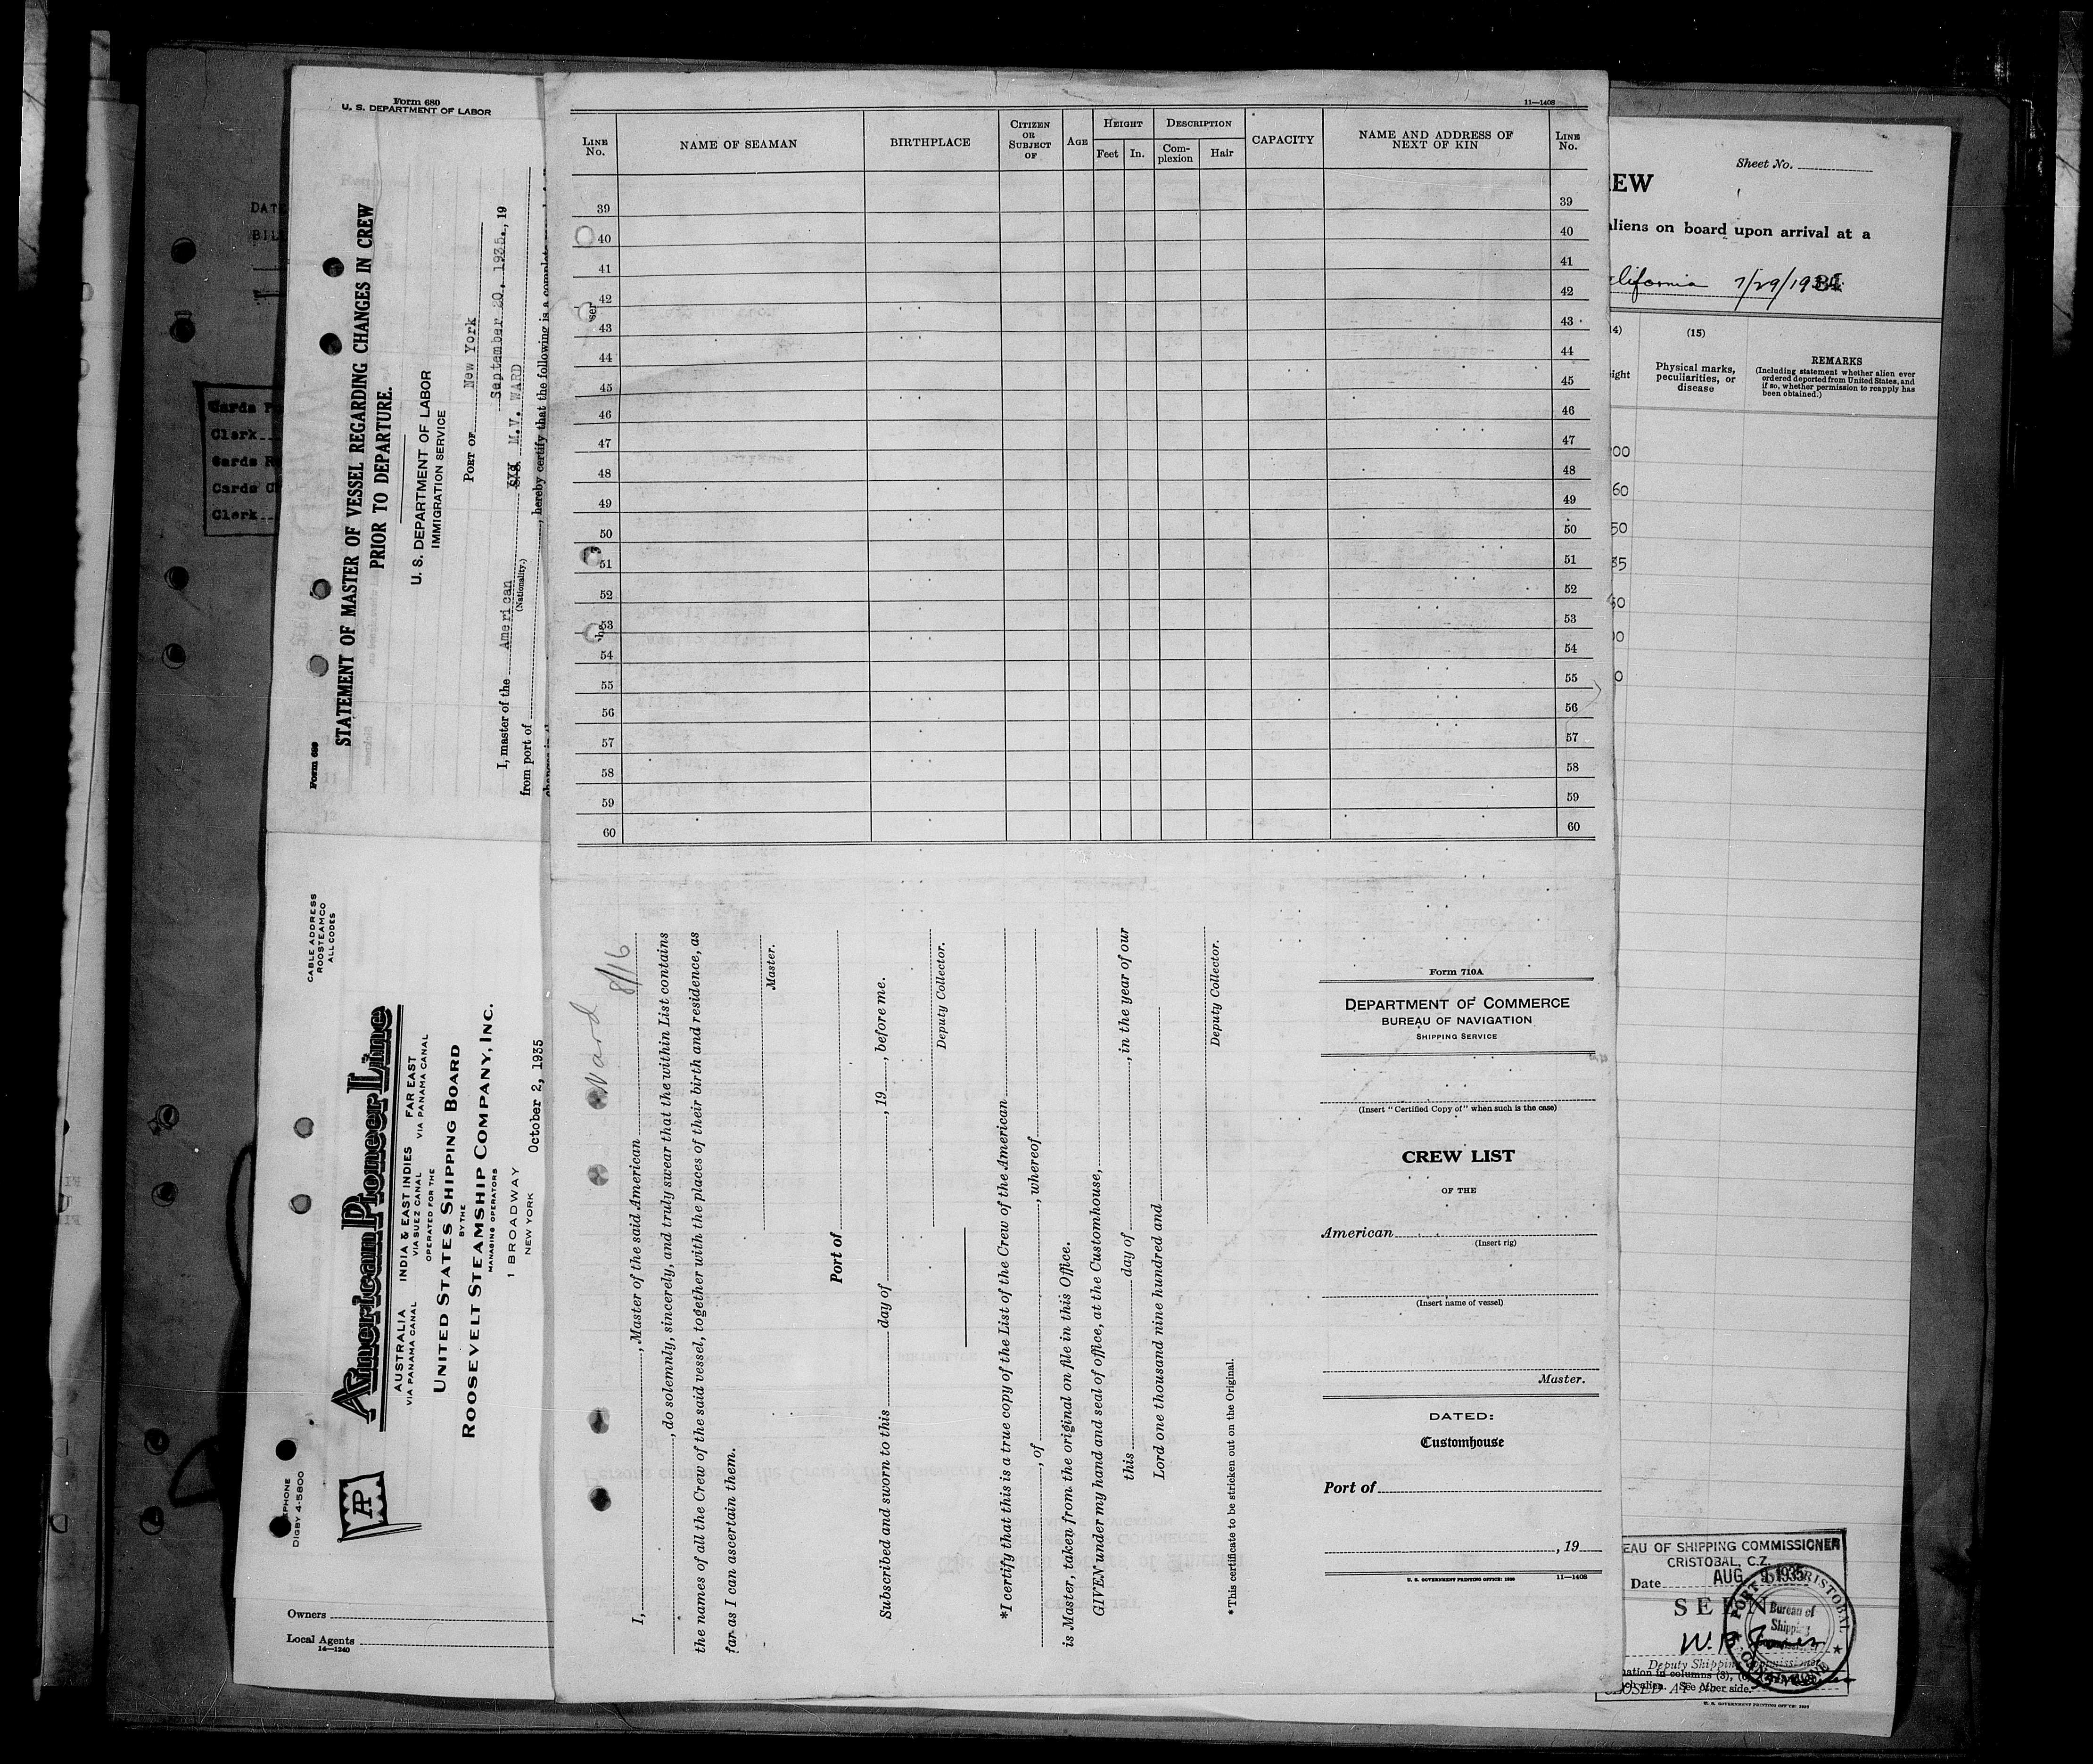 Form 680
U. S. DEPARTMENT OF LABOR
DATE
BILL
Cards
Clerk
Cards
Cards
Clerk
Form 689
STATEMENT OF MASTER OF VESSEL REGARDING CHANGES IN CREW
PRIOR TO DEPARTURE.
U. S. DEPARTMENT OF LABOR
IMMIGRATION SERVICE
PORT OF New York
September 20, 1935., 19
I, master of the American M.V. WARD
(Nationality.)
from port of , hereby certify that the following is a complete
CABLE ADDRESS
ROOSTEAMCO
ALL CODES
American Pioneer Line
AUSTRALIA INDIA & EAST INDIES FAR EAST
VIA PANAMA CANAL VIA SUEZ CANAL VIA PANAMA CANAL
OPERATED FOR THE
UNITED STATES SHIPPING BOARD
BY THE
ROOSEVELT STEAMSHIP COMPANY, INC.
MANAGING OPERATORS
1 BROADWAY
NEW YORK
October 2, 1935
AP
DIGBY 4-5800
Owners
Local Agents
14—1240
11—1408
LINE No. NAME OF SEAMAN BIRTHPLACE CITIZEN OR SUBJECT OF AGE HEIGHT Feet In. DESCRIPTION Complexion Hair CAPACITY NAME AND ADDRESS OF NEXT OF KIN LINE No.
39 39
40 40
41 41
42 42
43 43
44 44
45 45
46 46
47 47
48 48
49 49
50 50
51 51
52 52
53 53
54 54
55 55
56 56
57 57
58 58
59 59
60 60
Ward 8/16
I, , Master of the said American
, do solemnly, sincerely, and truly swear that the within List contains
the names of all the Crew of the said vessel, together with the places of their birth and residence, as
far as I can ascertain them.
Master.
Port of
Subscribed and sworn to this day of , 19 , before me.
Deputy Collector.
*I certify that this is a true copy of the List of the Crew of the American
, of , whereof
is Master, taken from the original on file in this Office.
GIVEN under my hand and seal of office, at the Customhouse,
this day of , in the year of our
Lord one thousand nine hundred and
Deputy Collector.
*This certificate to be stricken out on the Original.
Form 710A
DEPARTMENT OF COMMERCE
BUREAU OF NAVIGATION
SHIPPING SERVICE
(Insert "Certified Copy of" when such is the case)
CREW LIST
OF THE
American
(Insert rig)
(Insert name of vessel)
Master.
DATED:
Customhouse
Port of
, 19
U. S. GOVERNMENT PRINTING OFFICE: 11—1408
Sheet No.
EW
aliens on board upon arrival at a
7/29/193
(15)
Physical marks, peculiarities, or disease
REMARKS
(Including statement whether alien ever
ordered deported from United States, and
if so, whether permission to reapply has
been obtained.)
00
60
50
35
50
00
0
EAU OF SHIPPING COMMISSIONER
CRISTOBAL, C.Z.
Date AUG 9 1935
SEEN
PORT OF CRISTOBAL
Bureau of
Shipping
Deputy Shipping Commissioner
ation in columns (3), (
ch alien. See other side.
U. S. GOVERNMENT PRINTING OFFICE